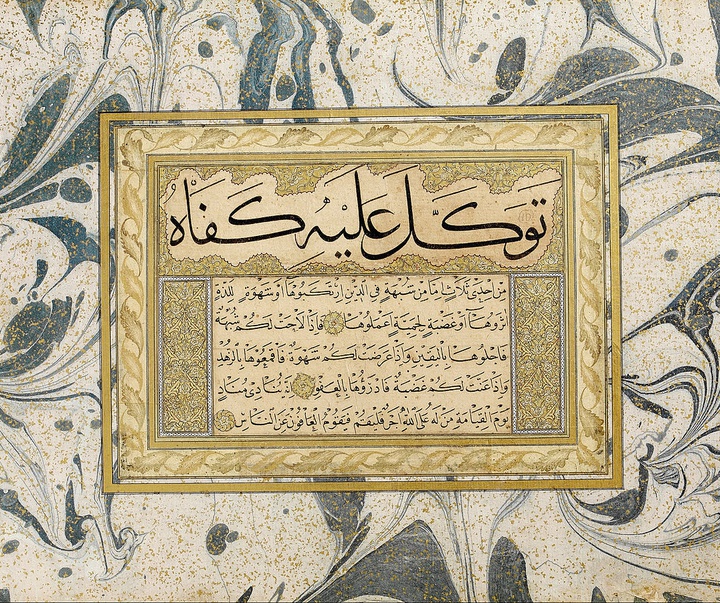 تَوَكَّلَ عَلَيْهِ كَفَاهُ
مِنْ اِحْدٰى ثَلَاثٍ اِمَّا مِنْ شُبْهَةٍ فِي الدِّينِ ارْتَكَبُوهَا اَوْ شَهْوَةٍ لِلَذَّةٍ
اٰثَرُوهَا اَوْ غَضْبَةٍ لِحَمِيَّةٍ اَعْمَلُوهَا فَاِذَا لَاحَتْ لَكُمْ شُبْهَةٌ
فَاجْلُوهَا بِالْيَقِينِ وَاِذَا عَرَضَتْ لَكُمْ شَهْوَةٌ فَاقْمَعُوهَا بِالزُّهْدِ
وَاِذَا عَنَتْ لَكُمْ غَضْبَةٌ فَادْرَؤُهَا بِالْعَفْوِ يُنَادِي مُنَادٍ
يَوْمَ الْقِيَامَةِ مَنْ لَهُ عَلَى اللّٰهِ اَجْرٌ فَلْيَقُمْ فَيَقُومُ الْعَافُونَ عَنِ النَّاسِ